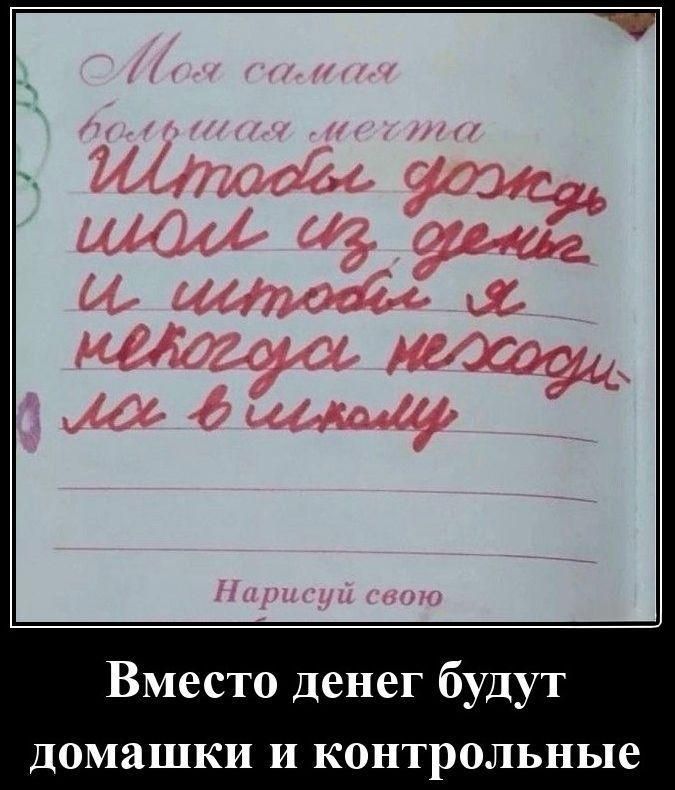 Моя самая
большая мечта
Штобы дождь
шол из деньг
и штобы я
некогда неходи-
ла в школу
Нарисуй свою
Вместо денег будут
домашки и контрольные